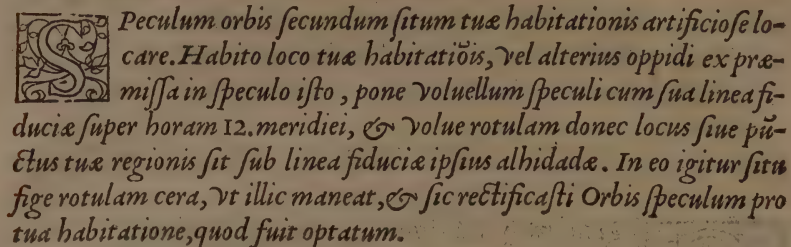 SPeculum orbis ſecundum ſitum tuæ habitationis artificioſe lo-
care. Habito loco tuæ habitatiõis, vel alterius oppidi ex præ-
miſſa in ſpeculo iſto, pone voluellum ſpeculi cum ſua linea fi-
duciæ ſuper horam 12. meridiei, & volue rotulam donec locus ſiue pũ-
ctus tuæ regionis ſit ſub linea fiduciæ ipſius alhidadæ. In eo igitur ſitu
fige rotulam cera, vt illic maneat, & ſic rectificaſti Orbis ſpeculum pro
tua habitatione, quod fuit optatum.